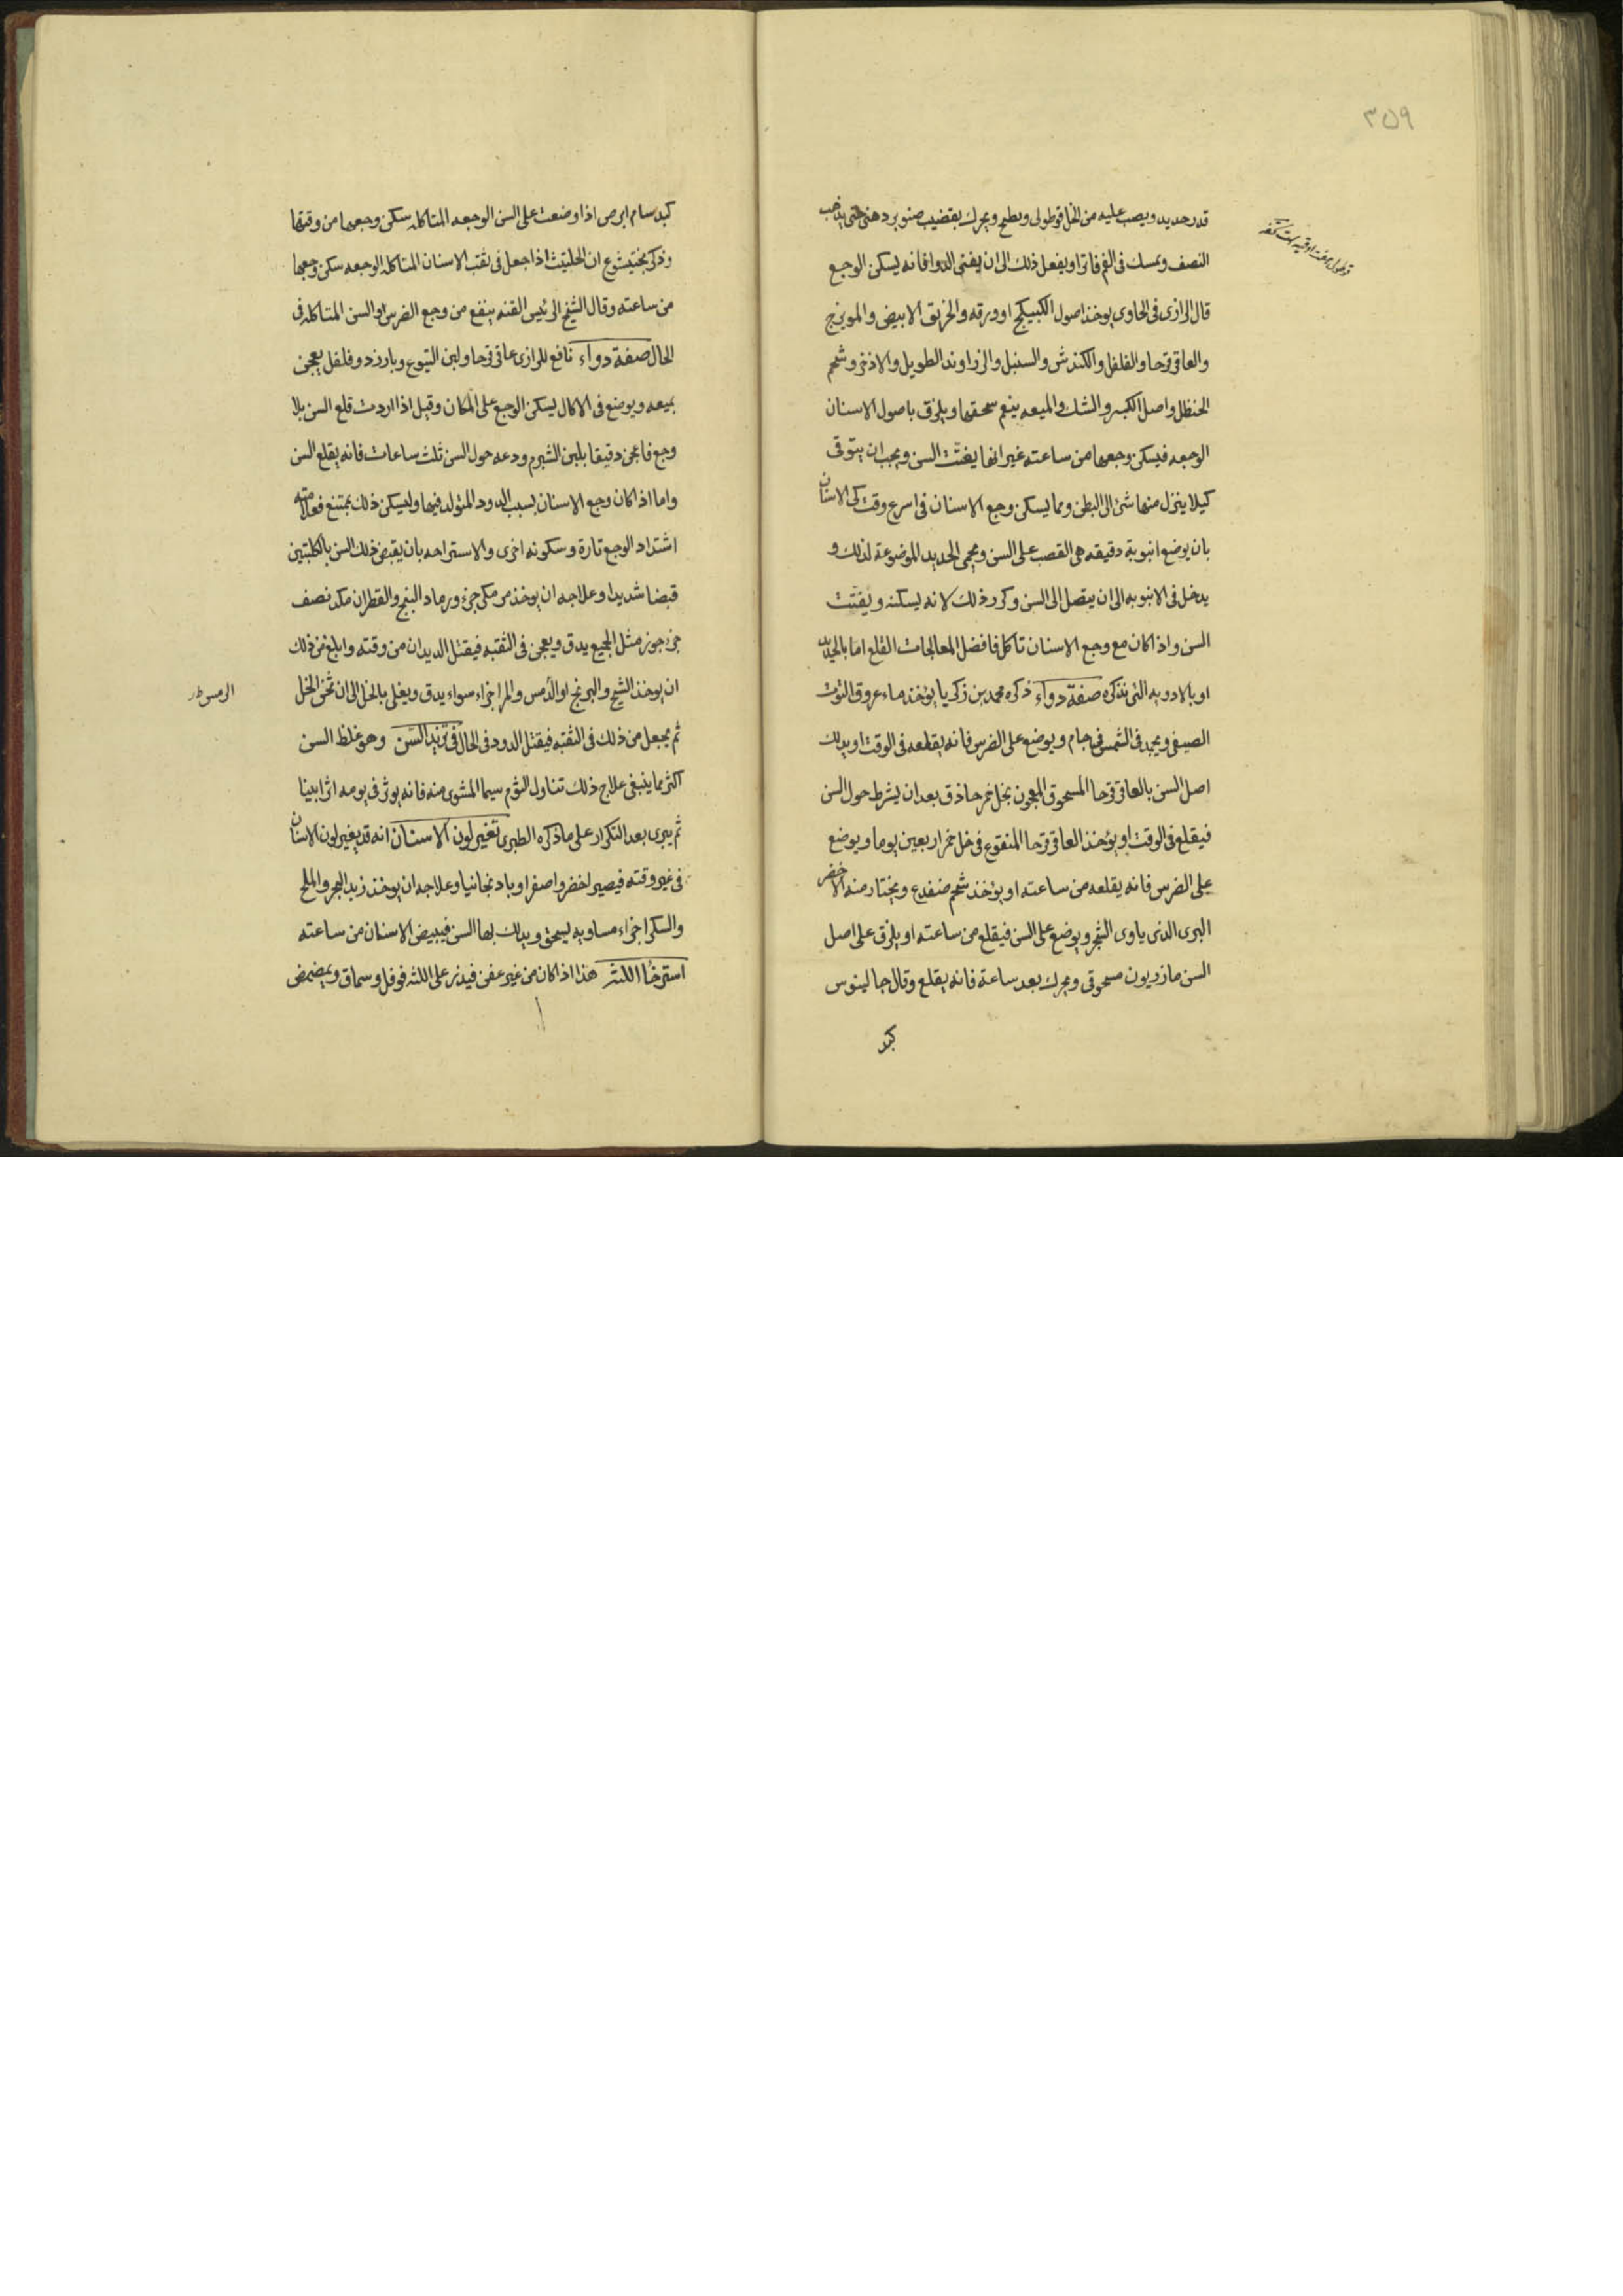 ٣٥٩
قدر حديد ويصب عليه من الخل قوطولى ويطبخ ويحرك بقضيب صنوبر دهنى حتى يذهب
النصف ويمسك فى الفم فاترا ويفعل ذلك الى ان يفنى الدوا فانه يسكن الوجع
قال الرازى فى الحاوى يوخذ اصول الكبيكج او ورقه والخربق الابيض والمويزج
والعاقرقرحا والفلفل والكندش والسنبل والزراوند الطويل والاذخر وشحم
الحنظل واصل الكبر والشك والميعه ينعم سحقها ويلزق باصول الاسنان
الوجعه فيسكن وجعها من ساعته غير انها يفتت السن ويجب ان يتوقى
كيلا ينزل منها شئ الى البطن ومما يسكن وجع الاسنان فى اسرع وقت كى الاسنان
بان يوضع انبوبة دقيقه هى القصب على السن ويحمى الحديد الموضوعة لذلك و
يدخل فى الانبوبه الى ان يتصل الى السن وكرر ذلك لانه يسكنه ويفتت
السن واذا كان مع وجع الاسنان تأكل فافضل المعالجات القلع اما بالحديد
او بالادويه التى نذكره صفة دواء ذكره محمد بن زكريا يوخذ ماء عروق التوت
الصيفى ويجمد فى الشمس فى جام ويوضع على الضرس فانه يقلعه فى الوقت او يدلك
اصل السن بالعاقرقرحا المسحوق المعجون بخل خمر حاذق بعد ان يشرط حول السن
فيقلع فى الوقت او يؤخذ العاقرقرحا المنقوع فى خل خمر اربعين يوما ويوضع
على الضرس فانه يقلعه من ساعته او يؤخذ شحم ضفدع ويختار منه الاخضر
البرى الذى ياوى الشجر ويوضع على السن فيقلع من ساعته او يلزق على اصل
السن مازريون مسحوق ويحرك بعد ساعة فانه يقلع وقال جالينوس
كبد
كبد سام ابرص اذا وضعت على السن الوجعه المتاكله سكن وجعها من وقتها
وذكر بختيشوع ان الحلتيث اذا جعل فى ثقب الاسنان المتاكله الوجعه سكن وجعها
من ساعته وقال الشيخ الرئيس القنه ينفع من وجع الضرس او السن المتاكله فى
الحال صفة دواء نافع للرازى عاقرقرحا ولبن اليتوع وبارزد وفلفل يعجن
بميعه ويوضع فى الاكال يسكن الوجع على المكان وقيل اذا اردت قلع السن بلا
وجع فاعجن دقيقا بلبن الشبرم ودعه حول السن ثلث ساعات فانه يقلع السن
واما اذا كان وجع الاسنان بسبب الدود المتولد فيها وليسكن ذلك بمتنع فعلامته
اشتداد الوجع تارة وسكونه اخرى والاستراحه بان يقبض ذلك السن بالكلبتين
قبضا شديدا وعلاجه ان يوخذ مر مكى جزء ورماد البنج والقطران مكد نصف
جزء جوز مثل الجميع يدق ويعجن فى الثقبه فيقتل الديدان من وقته وابلغ من ذلك
ان يوخذ الشيح والبرنج او الدمس والمر اجزاء سواء يدق ويغلى بالخل الى ان ثخن الخل
الرمس
ثم يجعل من ذلك فى الثقبه فيقتل الدود فى الحال فى تزيد السن وهو غلظ السن
اكثر مما ينبغى علاج ذلك تناول الثوم سيما المشوى منه فانه يوثر فى يومه اثرا بينا
ثم يبرى بعد التكرار على ما ذكره الطبرى تغير لون الاسنان انه قد يغير لون الاسنان
فى غير وقته فيصير اخضر واصفر او بادنجانيا وعلاجه ان يوخذ زبد البحر والملح
والسكر اجزاء مساويه ليسحق ويدلك بها السن فيبيض الاسنان من ساعته
استرخاء اللثه هذا اذا كان من غير عفن فيذر على اللثه فوفل وسماق ويمضمض